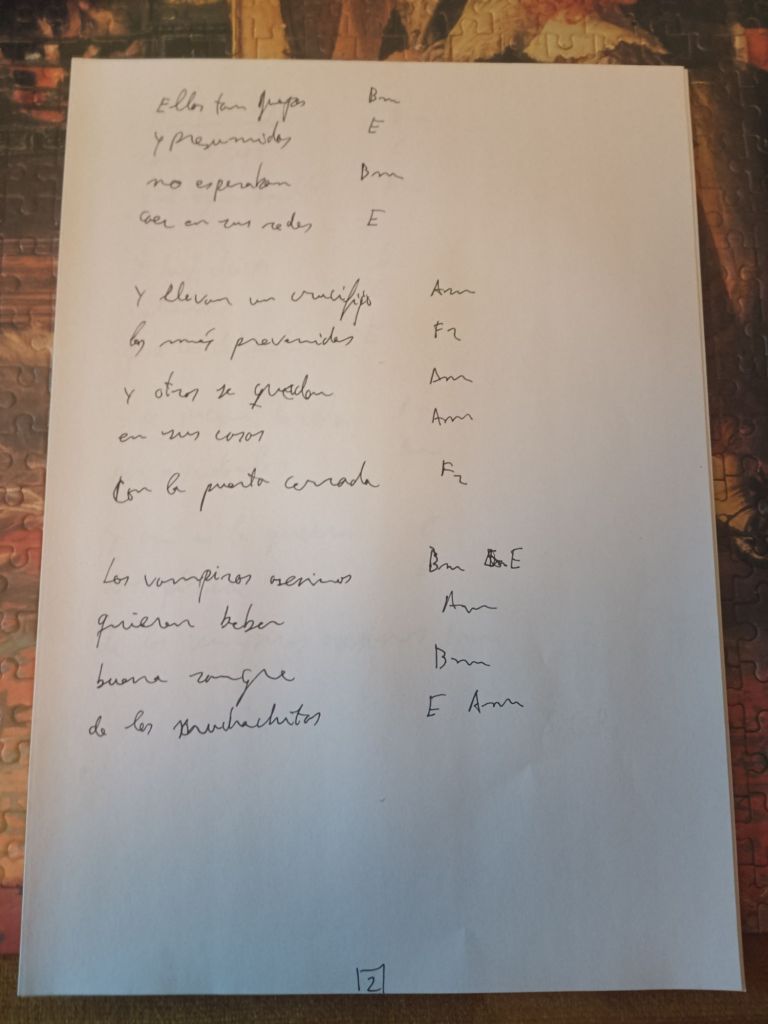 Ellos tan guapos Bm
y presumidos E
no esperaban Bm
caer en sus redes E
Y llevan un crucifijo Am
los más prevenidos F2
y otros se quedan Am
en sus casas Am
Con la puerta cerrada F2
Los vampiros asesinos Bm E
quieren beber Am
buena sangre Bm
de los muchachitos E Am
2